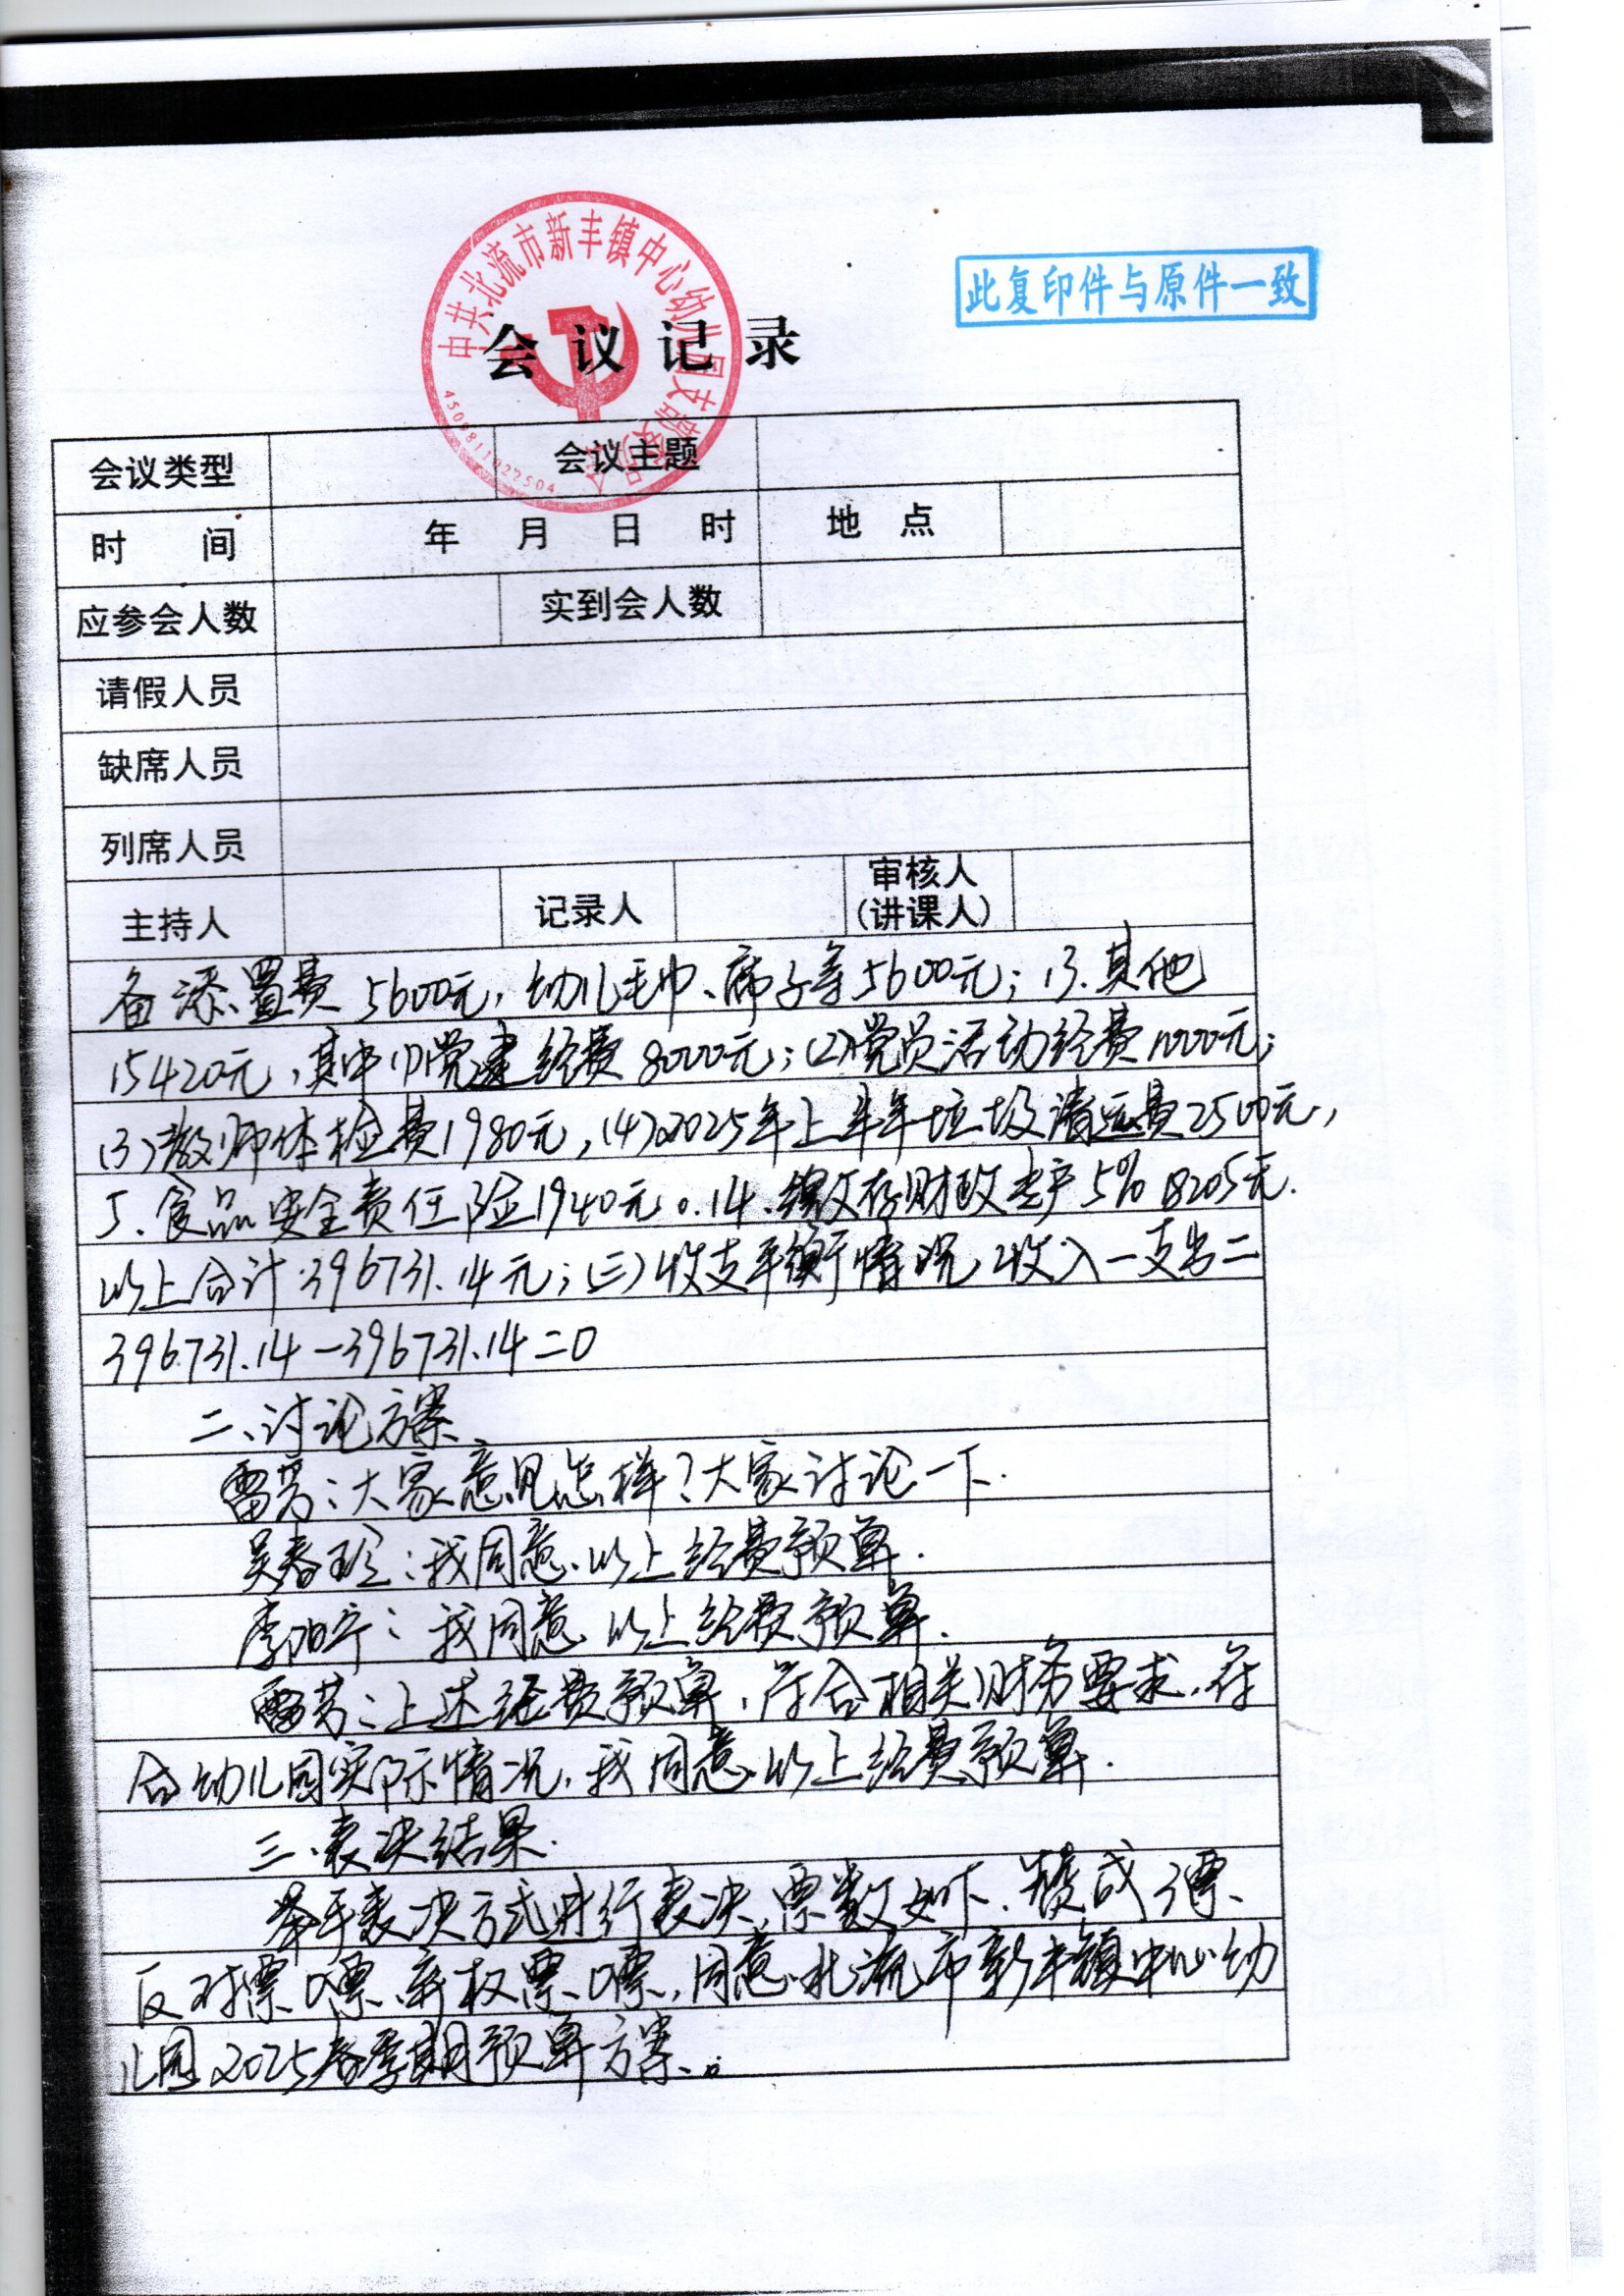 中共北流市新丰镇中心幼儿园支部委员会
4509811022504
此复印件与原件一致
会议记录
会议类型 会议主题
时 间 年 月 日 时 地 点
应参会人数 实到会人数
请假人员
缺席人员
列席人员
主持人 记录人 审核人(讲课人)
备添置费5600元,幼儿毛巾、席子等5600元;13.其他
15420元,其中(1)党建经费8000元;(2)党员活动经费1000元;
(3)教师体检费1980元,(4)2025年上半年垃圾清运费2500元,
5、食品安全责任险1940元。14.缴存财政专户5% 8205元.
以上合计:396731.14元;(三)收支平衡情况 收入-支出=
396731.14-396731.14=0
二、讨论方案
雷芳:大家意见怎样?大家讨论一下.
吴春珍:我同意以上经费预算.
李阳宁:我同意以上经费预算.
雷芳:上述经费预算,符合相关财务要求,符
合幼儿园实际情况,我同意以上经费预算.
三、表决结果.
举手表决方式进行表决,票数如下.赞成3票、
反对票0票、弃权票0票,同意北流市新丰镇中心幼
儿园2025春季期预算方案。